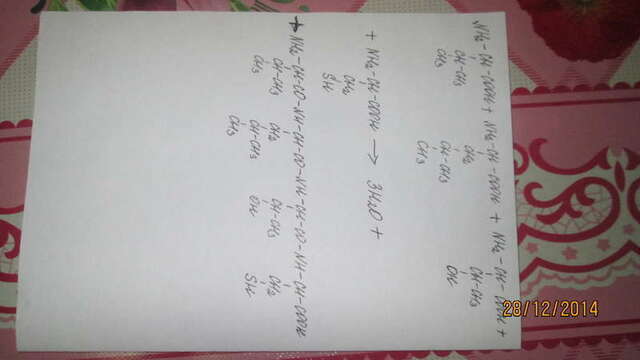 NH₂-CH-COOH + NH₂-CH-COOH + NH₂-CH-COOH +
CH-CH₃ CH₂ CH-CH₃
CH₃ CH-CH₃ OH
CH₃
+ NH₂-CH-COOH → 3H₂O +
CH₂
SH
+ NH₂-CH-CO-NH-CH-CO-NH-CH-CO-NH-CH-COOH
CH-CH₃ CH₂ CH-CH₃ CH₂
CH₃ CH-CH₃ OH SH
CH₃
28/12/2014